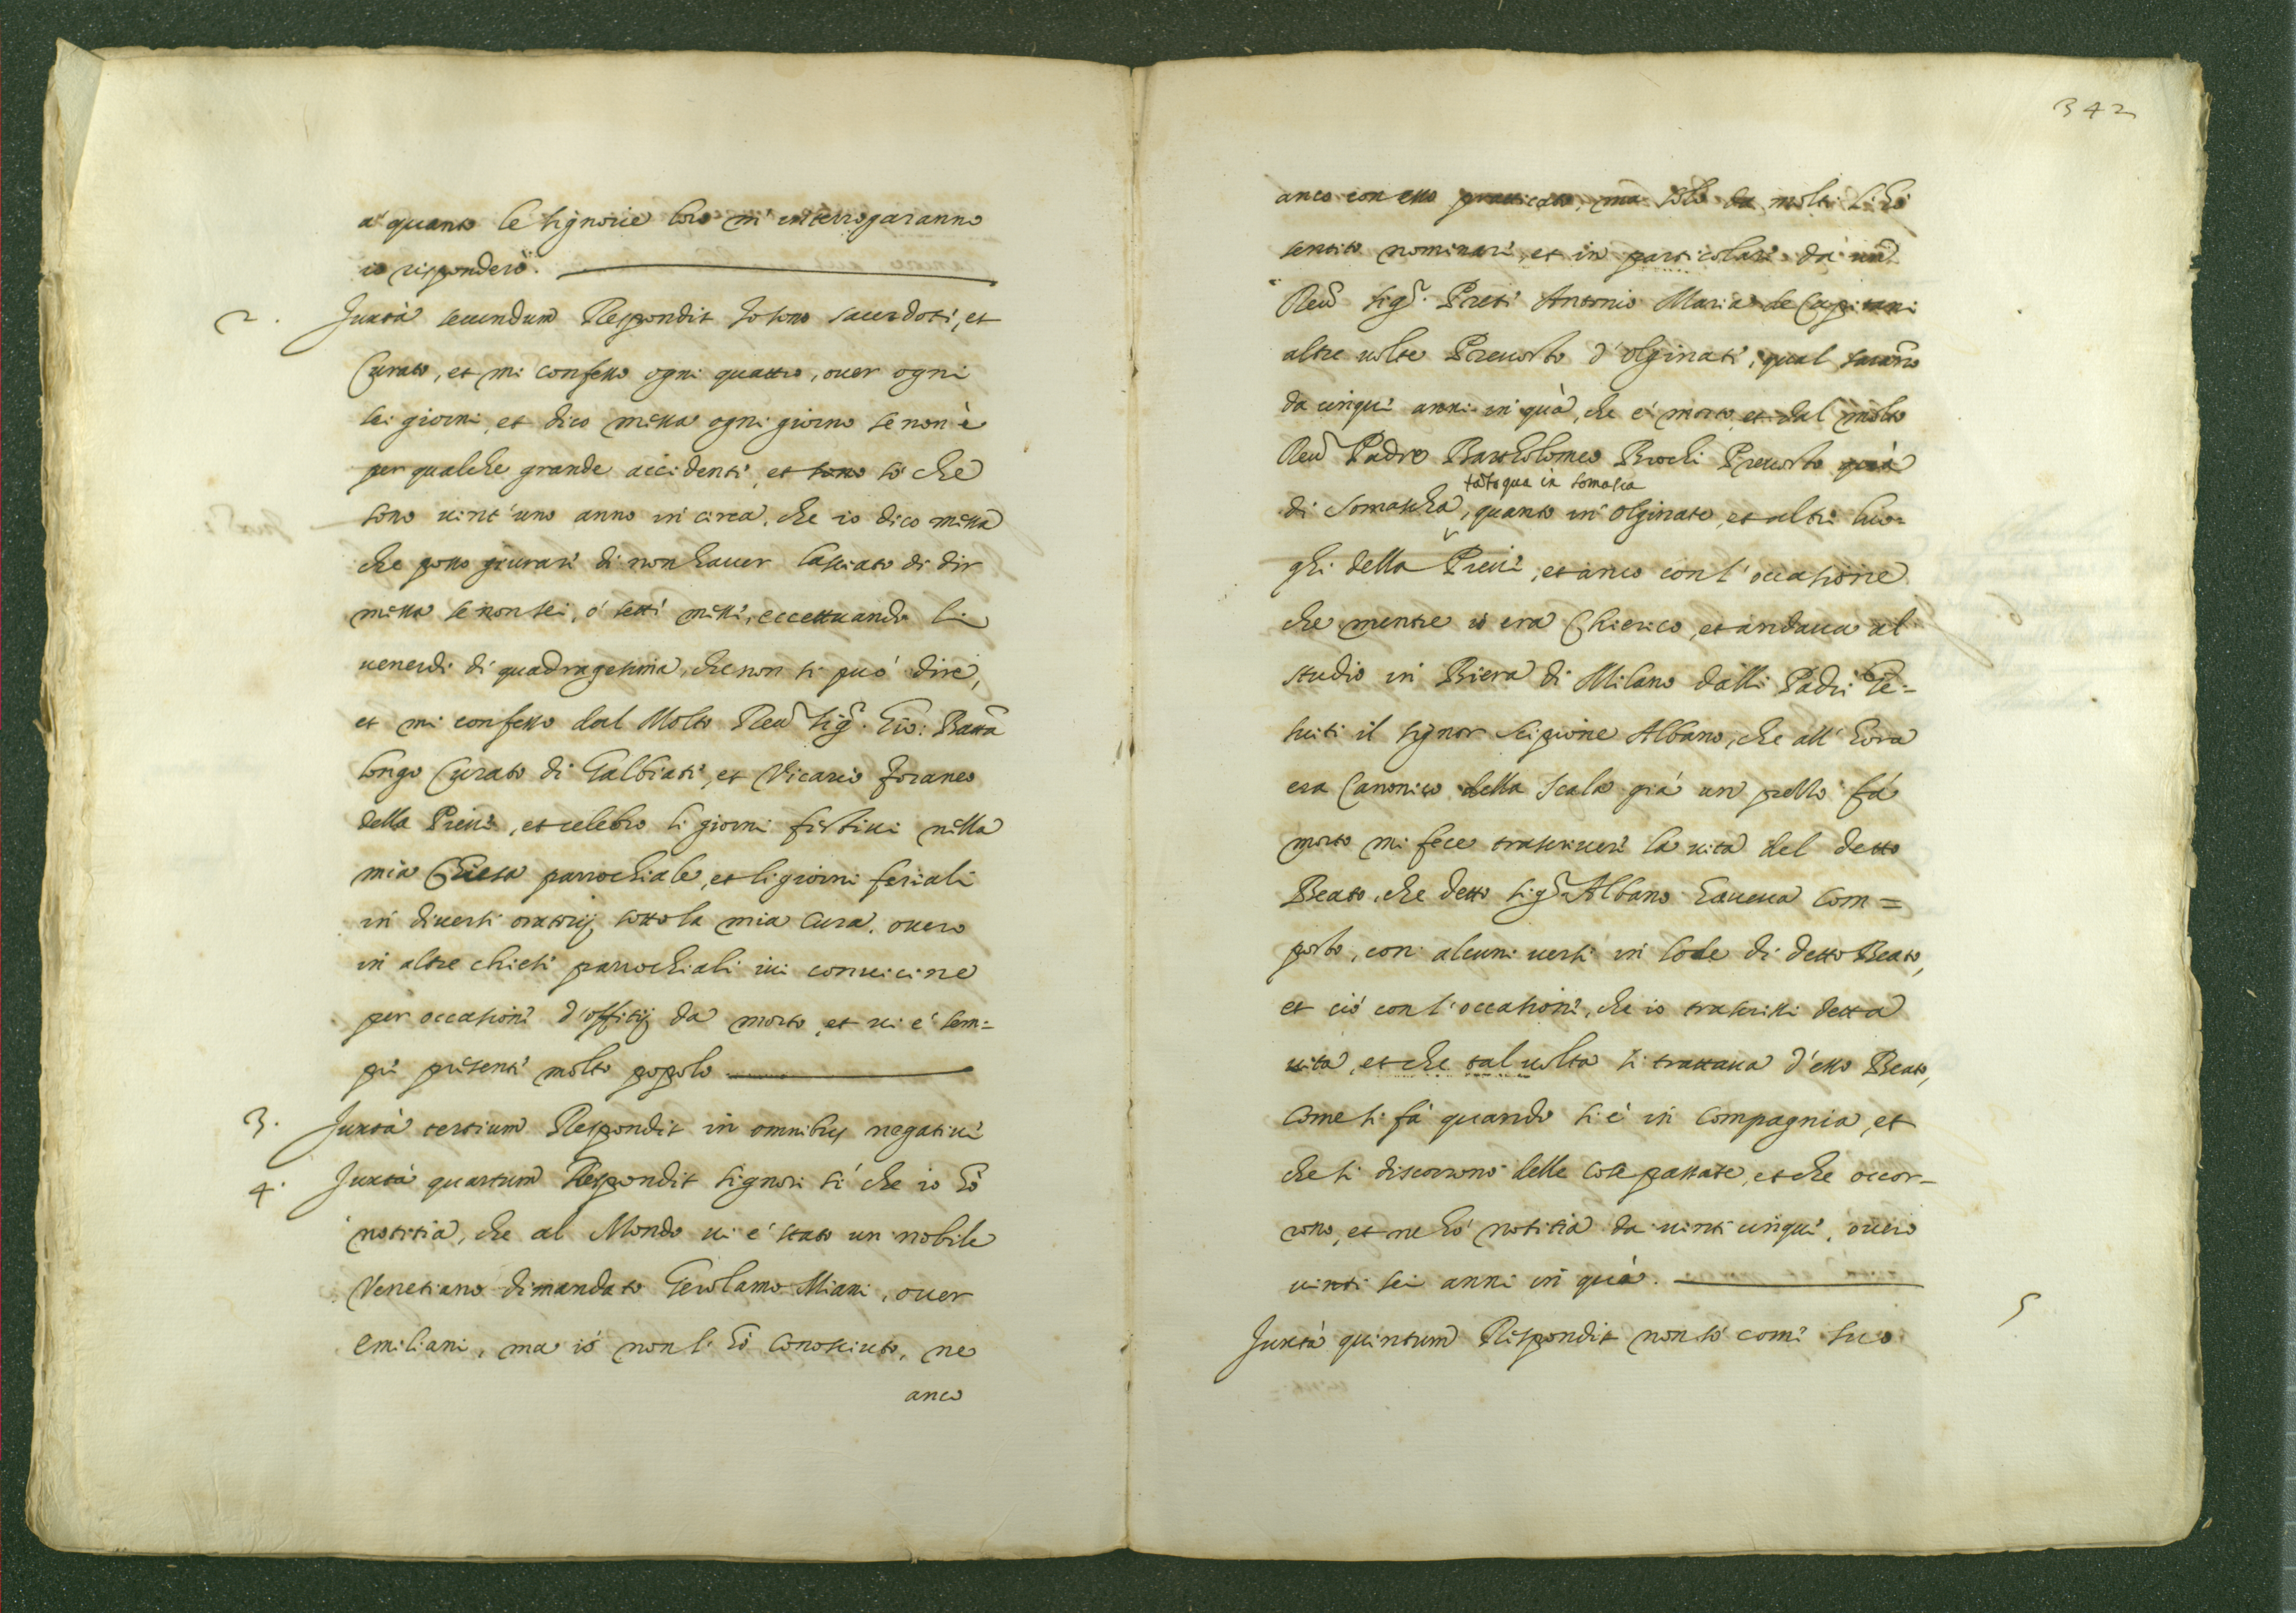 a' quanto le signorie loro m' interrogaranno
io risponderò.
2. Juxtà secundum Respondit Io sono sacerdote, et
Curato, et mi confesso ogni quattro, ouer ogni
sei giorni, et dico messa ogni giorno se non è
per qualche grande accidente, et sono so che
sono uint'uno anno in circa, che io dico messa
che posso giurare di non hauer lasciato di dir
messa se non sei, ó sette messe, eccettuando li
uenerdi di quadragesima, che non si puó dire,
et mi confesso dal Molto Reu.do Sig.r Gio: Batta
longo Curato di Galbiate, et Vicario foraneo
della Pieue, et celebro li giorni festiui nella
mia Chiesa parrochiale, et li giorni feriali
in diuersi oratorij sotto la mia Cura, ouero
in altre chiese parrochiali iui conuicine
per occasione d'offitij da morto, et ui é sem=
pre presente molto popolo
3. Juxtà tertium Respondit in omnibus negatiuè
4. Juxtà quartum Respondit signori sí che io hò
notitia, che al Mondo ui é stato un nobile
Venetiano dimandato Gerolamo Miani, ouer
emiliani, ma ió non l' hò conosciuto, ne
anco
342
anco con esso pratticato, ma solo da molti l'hò
sentito nominare, et in particolare da un
Reu.do Sig.r Prete Antonio Maria de Capitani
altre uolte Preuosto d'olginate, qual saranno
da cinque anni in quà, che é morto, et dal molto
Reu.do Padre Bartholomeo Brochi Preuosto quà
tãto qua in somasca
di Somascha, quanto in olginate, et altri luo=
ghi della Pieue, et anco con l'occasione
che mentre io era Chierico, et andaua al
studio in Biera di Milano dalli Padri Ge=
suiti il signor Scipione Albano, che all' hora
era Canonico della Scala giá un pezzo fá
morto mi fece trascriuere la uita del detto
Beato, che detto Sig.r Albano haueua com=
posto, con alcuni uersi in lode di detto Beato,
et ció con l'occasione, che io trascrissi detta
uita, et che tal uolta si trattaua d'esso Beato,
come si fá quando si é in compagnia, et
che si discorrono delle cose passate, et che occor=
rono, et ne hó notitia da uinti cinque, ouero
uinti sei anni in quà.
5
Juxtà quintum Respondit non só come suo